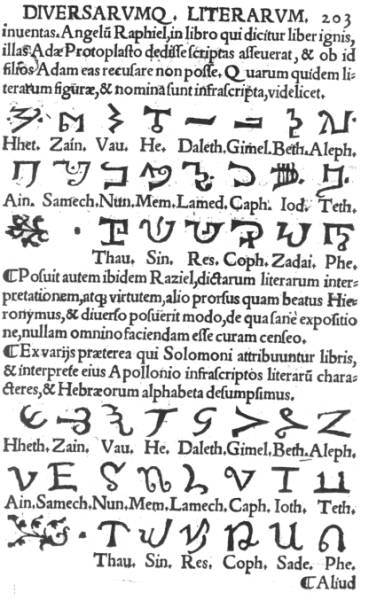 DIVERSARVMQ. LITERARVM. 203
inuentas. Angelũ Raphiel, in libro qui dicitur liber ignis,
illas Adæ Protoplasto dedisse scriptas asseuerat, & ob id
filios Adam eas recusare non posse. Quarum quidem li-
terarum figuræ, & nomina sunt infrascripta, videlicet.
Hhet. Zain. Vau. He. Daleth. Gimel. Beth. Aleph.
Ain. Samech. Nun. Mem. Lamed. Caph. Iod. Teth.
Thau. Sin. Res. Coph. Zadai. Phe.
⸿Posuit autem ibidem Raziel, dictarum literarum inter-
pretationem, atq; virtutem, alio prorsus quam beatus Hie-
ronymus, & diuerso posuerit modo, de qua sanè expositio
ne, nullam omnino faciendam esse curam censeo.
⸿Ex varijs præterea qui Solomoni attribuuntur libris,
& interprete eius Apollonio infrascriptos literarũ chara-
cteres, & Hebræorum alphabeta desumpsimus.
Hheth. Zain. Vau. He. Daleth. Gimel. Beth. Aleph.
Ain. Samech. Nun. Mem. Lamech. Caph. Ioth. Teth.
Thau. Sin. Res. Coph. Sade. Phe.
⸿Aliud